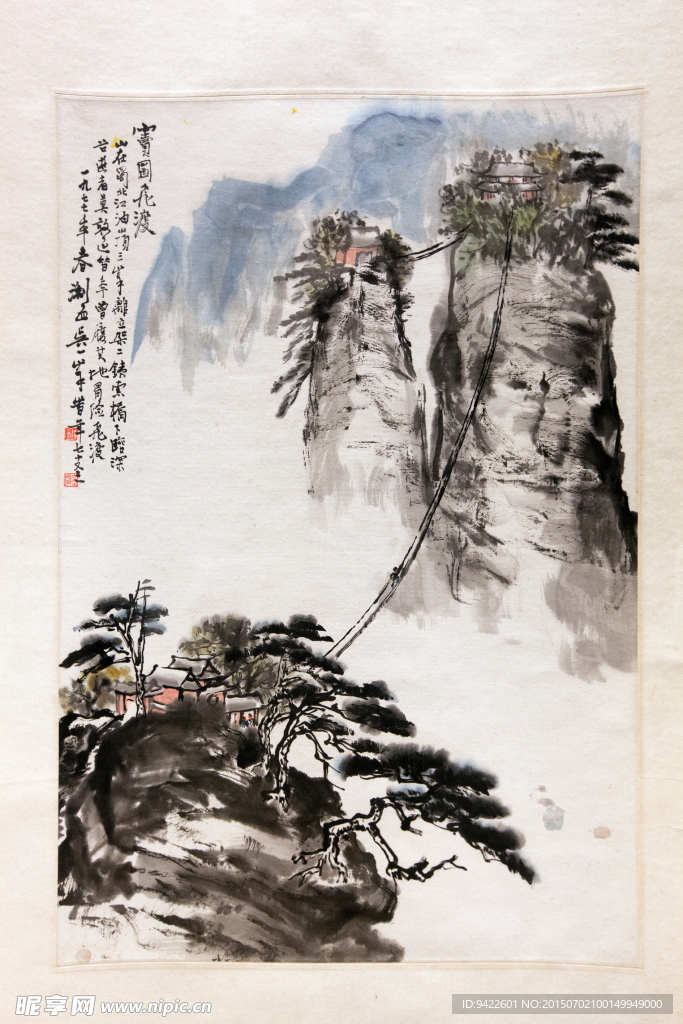 竇圌飛渡
山在蜀北江油山頂三峯離立架二鐵索橋下臨深
谷遊者莫敢過昔年曾履其地冒險飛渡
一九七七年春吳一峯年七十又
昵享网 www.nipic.cn
ID:9422601 NO:20150702100149949000